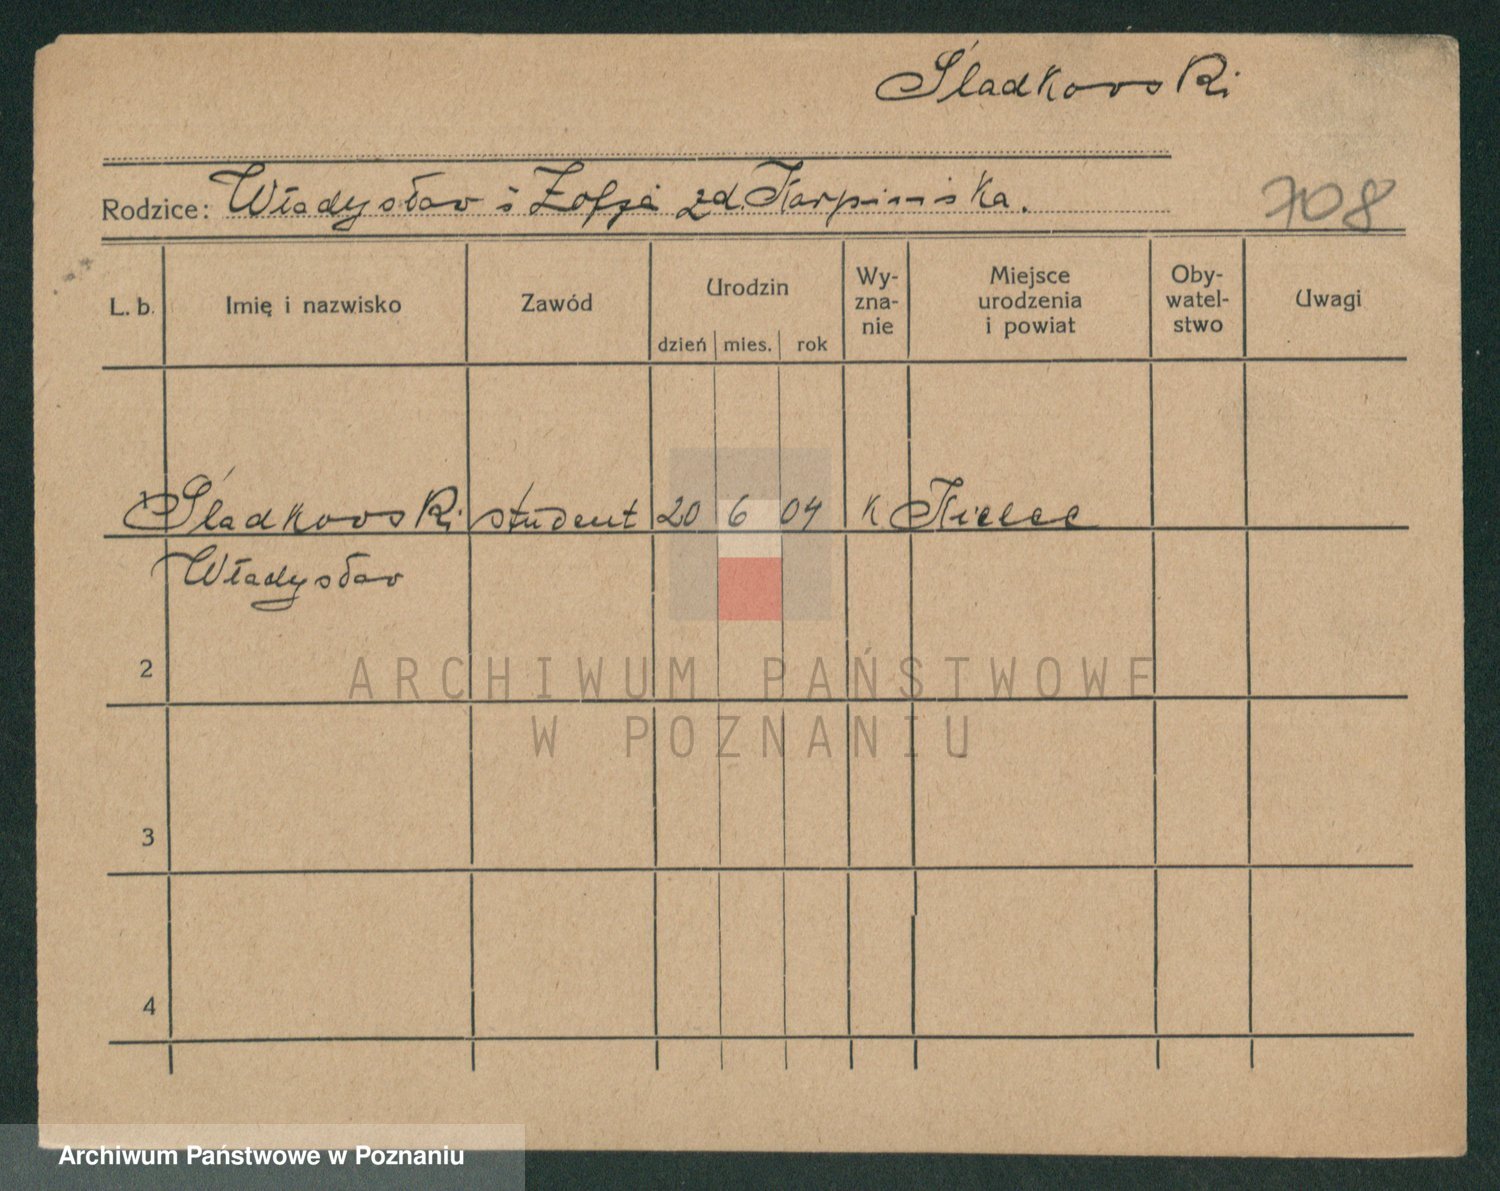 Śladkowski
Rodzice: Władysław i Zofja zd. Karpińska.
708
L. b. Imię i nazwisko Zawód Urodzin dzień mies. rok Wy-zna-nie Miejsce urodzenia i powiat Oby-watel-stwo Uwagi
1 Śladkowski student 20 6 04 K Kielce
Władysław
2
ARCHIWUM PAŃSTWOWE
W POZNANIU
3
4
Archiwum Państwowe w Poznaniu